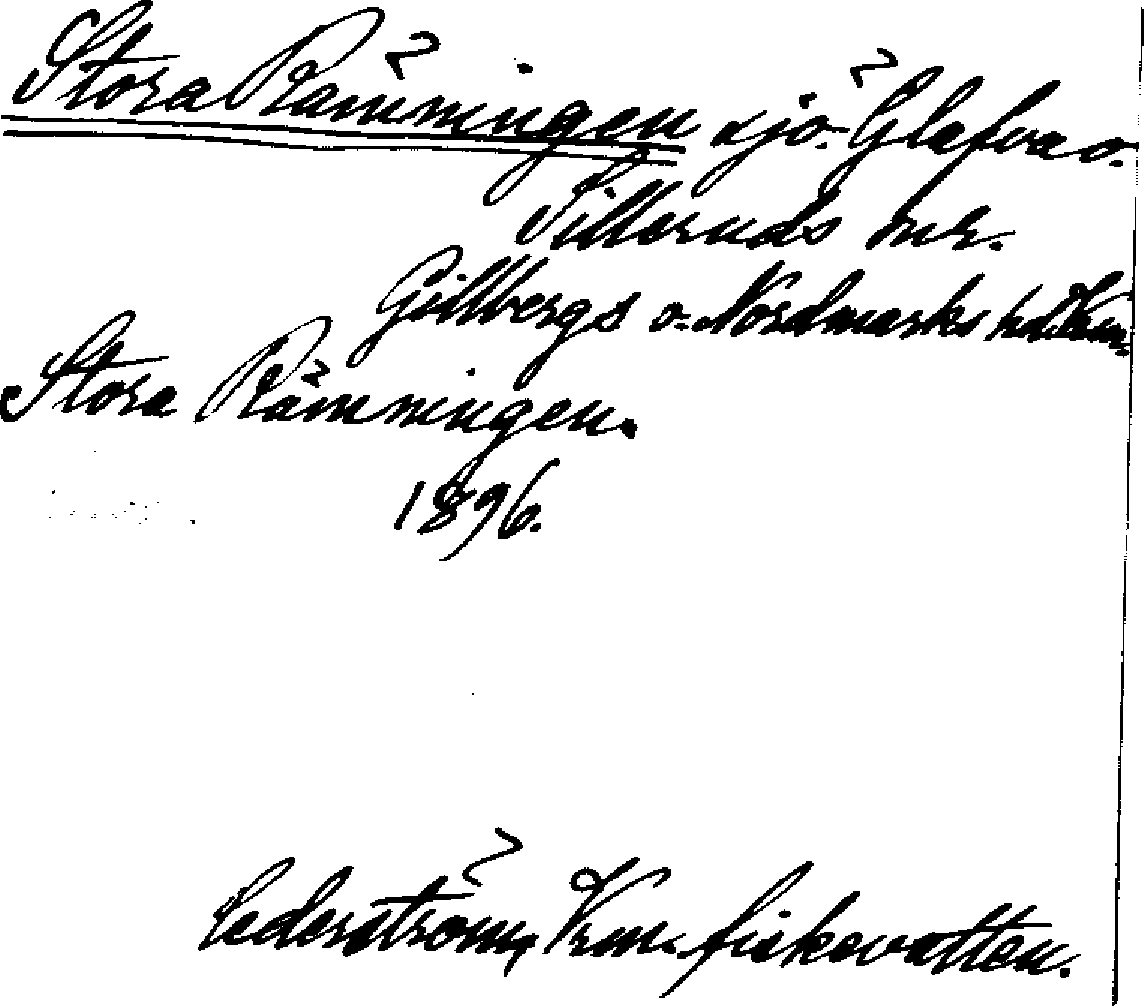 Stora Rämmingen sjö. Glafva o.
Silleruds snr.
Gillbergs o. Nordmarks hd. Vrm.
Stora Rämmingen.
1896.
Cederström, Vrm. fiskevatten.